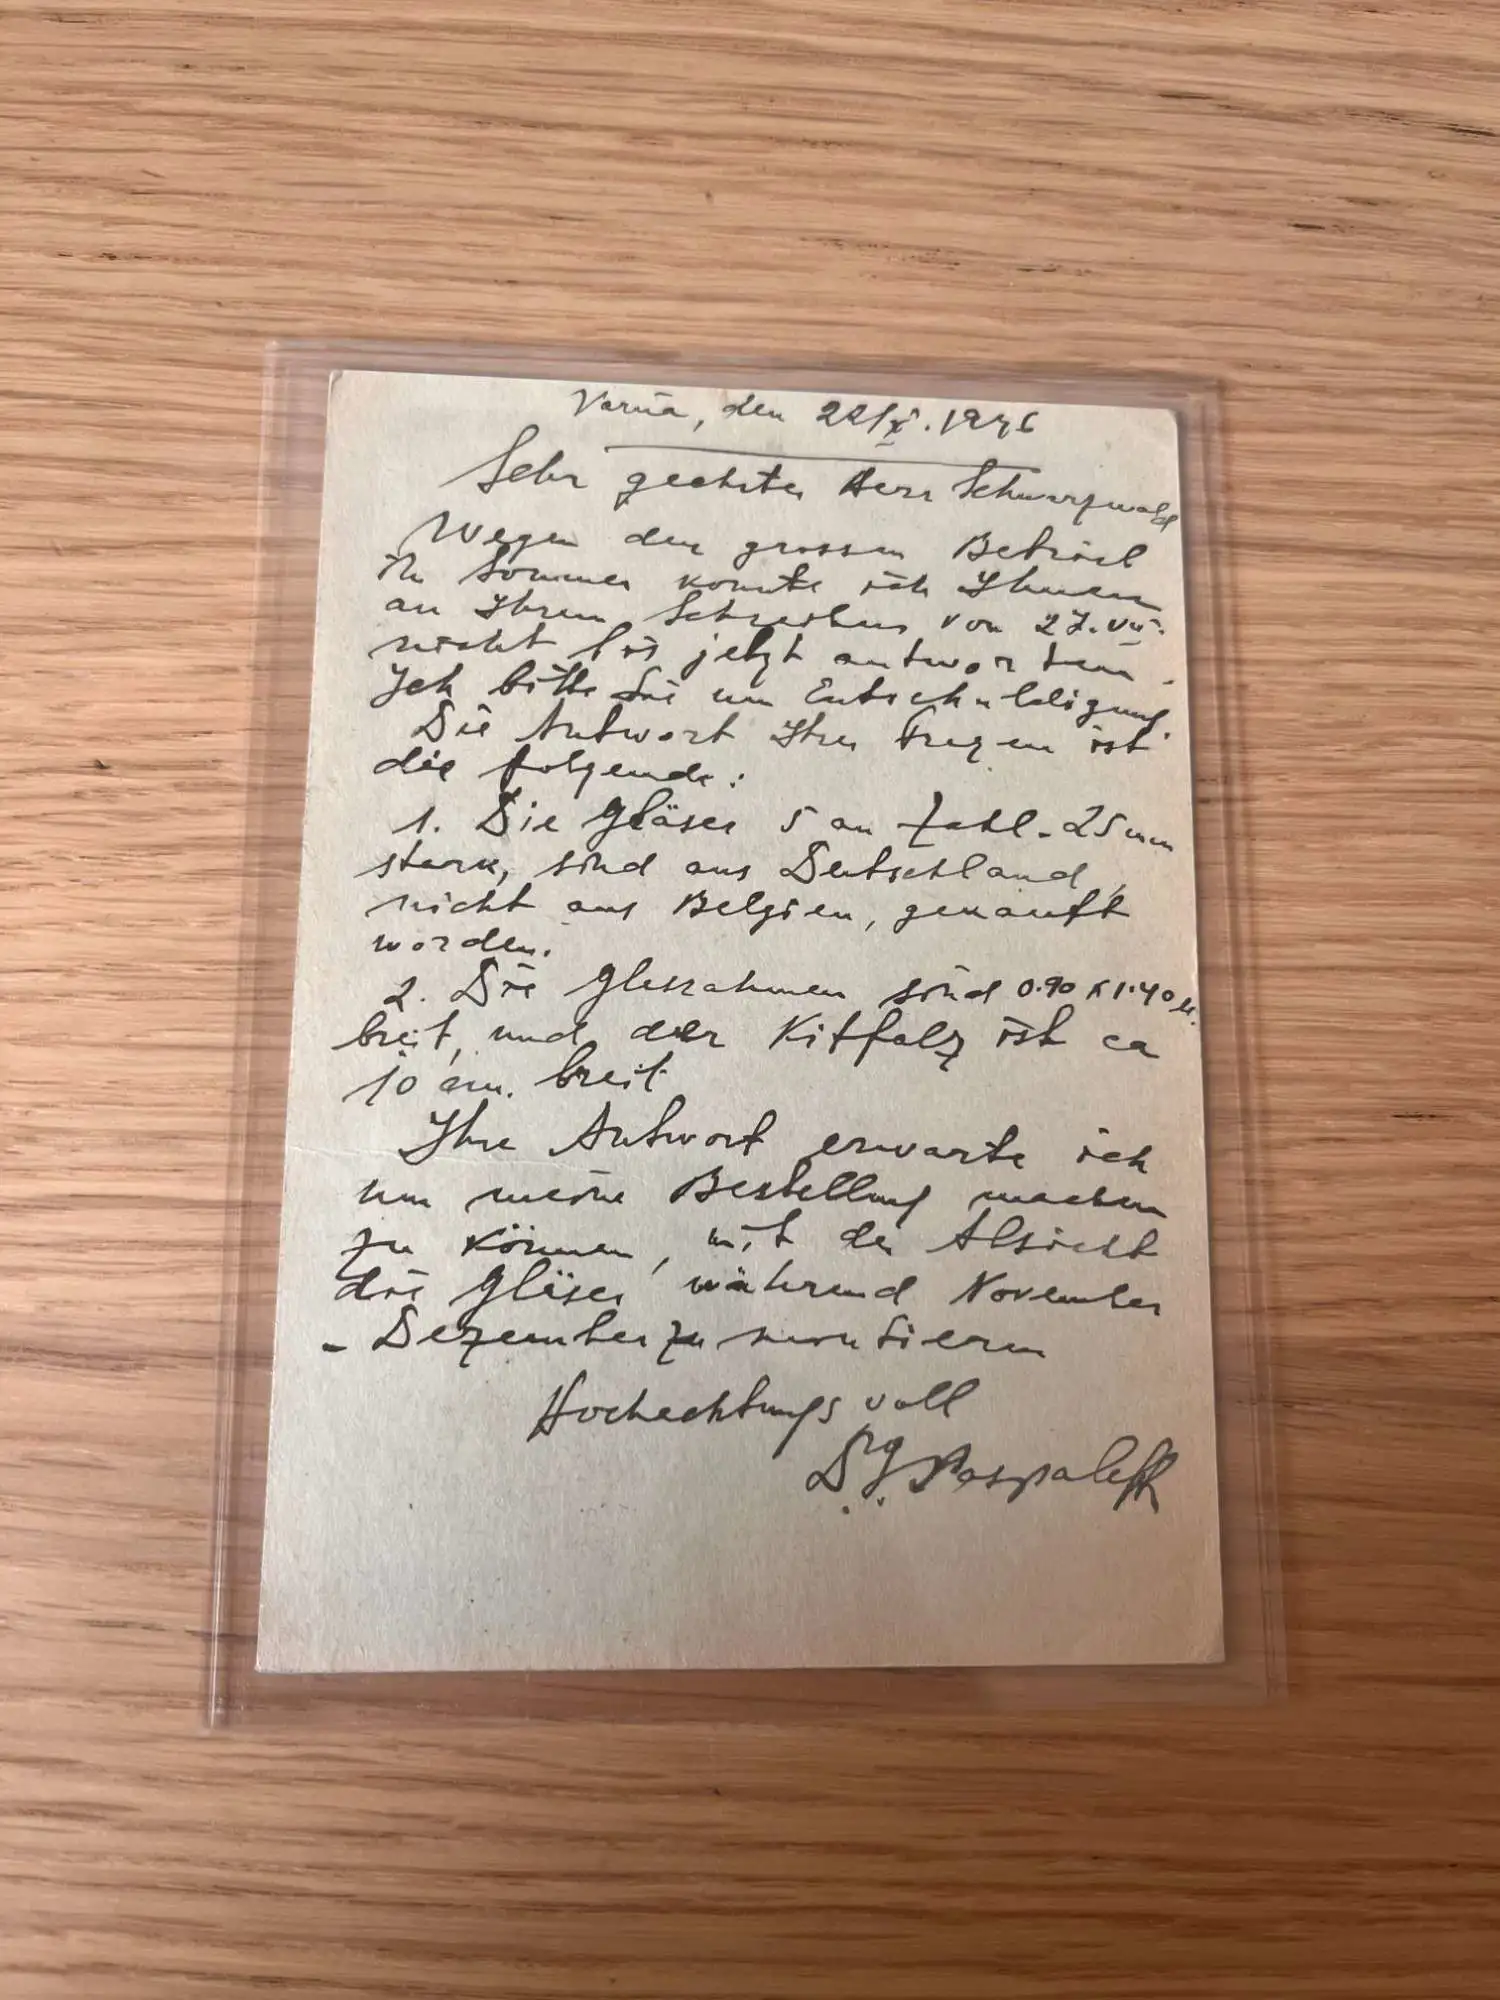 Varna, den 22/X. 1946
Sehr geehrter Herr Schwarzwald
Wegen den grossen Betrieb
in Sommer konnte ich Ihnen
an Ihrem Schreiben von 27.VII.
nicht bis jetzt antworten.
Ich bitte Sie um Entschuldigung.
Die Antwort Ihrer Fragen ist
die folgende:
1. Die Gläser 5 an Zahl - 25 mm
stark, sind aus Deutschland,
nicht aus Belgien, gekauft
worden.
2. Die Glasrahmen sind 0.90 x 1.40 M.
breit, und der Kitfalz ist ca
10 cm. breit.
Ihre Antwort erwarte ich
um meine Bestellung machen
zu können, mit der Absicht
die Gläser während November
- Dezember zu montieren
Hochachtungsvoll
Dr G. Paspaleff